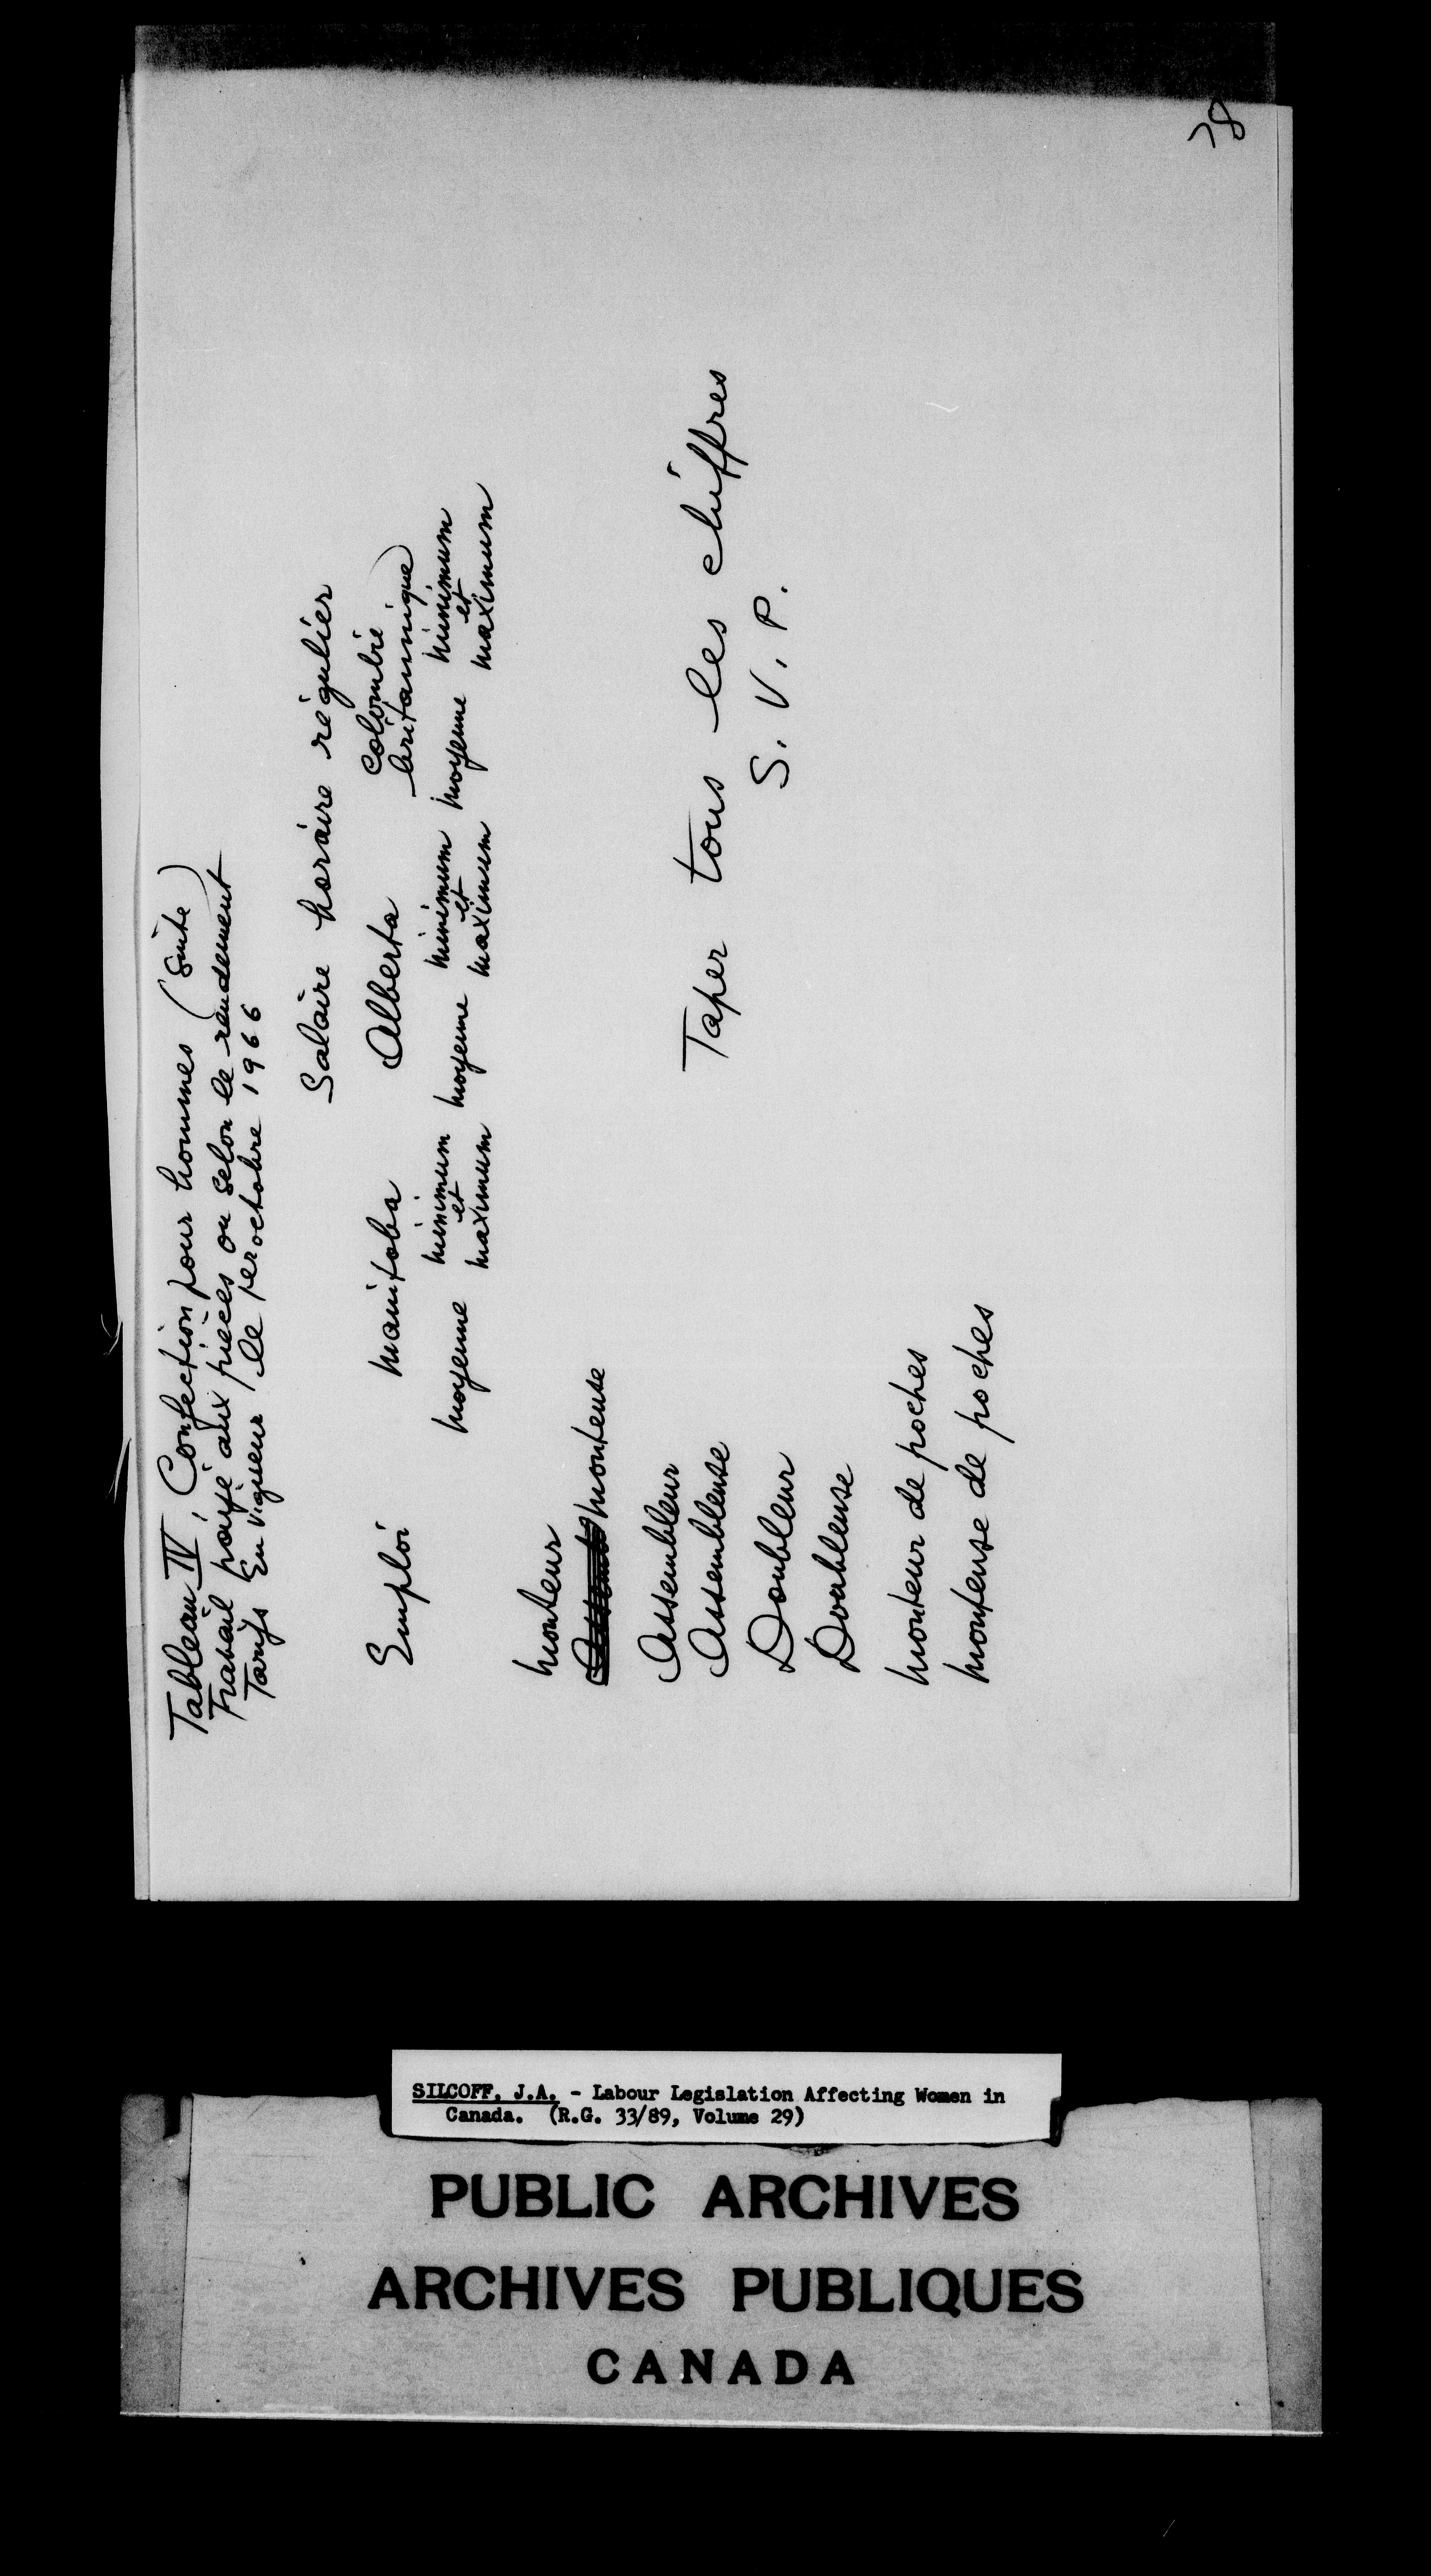 38
Tableau IV, Confection pour hommes (suite)
Travail payé aux pièces ou selon le rendement
Tarifs en vigueur le 1er octobre 1966
Salaire horaire régulier
Emploi Manitoba Alberta Colombie
britannique
moyenne minimum moyenne minimum moyenne minimum
et et et
maximum maximum maximum
monteur
monteuse
Assembleur
Assembleuse
Taper tous les chiffres
S.V.P.
Doubleur
Doubleuse
monteur de poches
monteuse de poches
SILCOFF, J.A. - Labour Legislation Affecting Women in
Canada. (R.G. 33/89, Volume 29)
PUBLIC ARCHIVES
ARCHIVES PUBLIQUES
CANADA